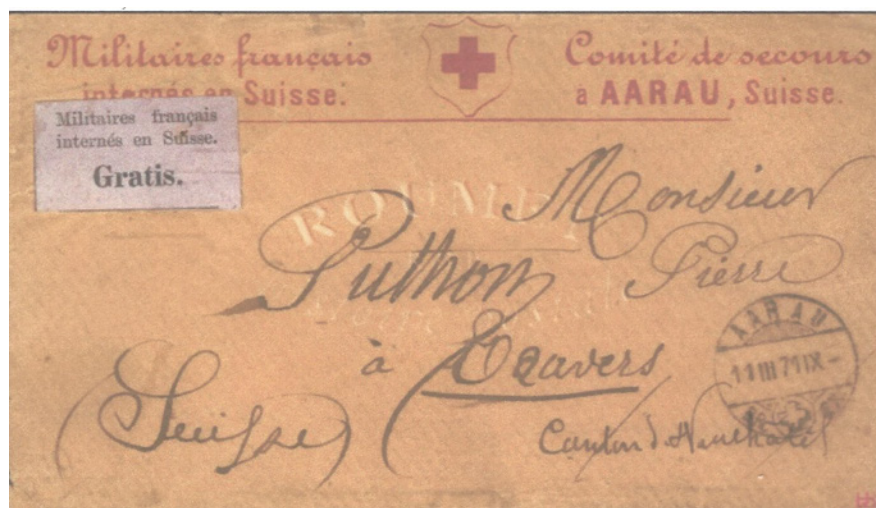 Militaires français
internés en Suisse.
Comité de secours
à AARAU, Suisse.
Militaires français
internés en Suisse.
Gratis.
Monsieur
Puthon Pierre
à Travers
(Suisse)
Canton d. Neuchatel
AARAU
11 III 71 IX -